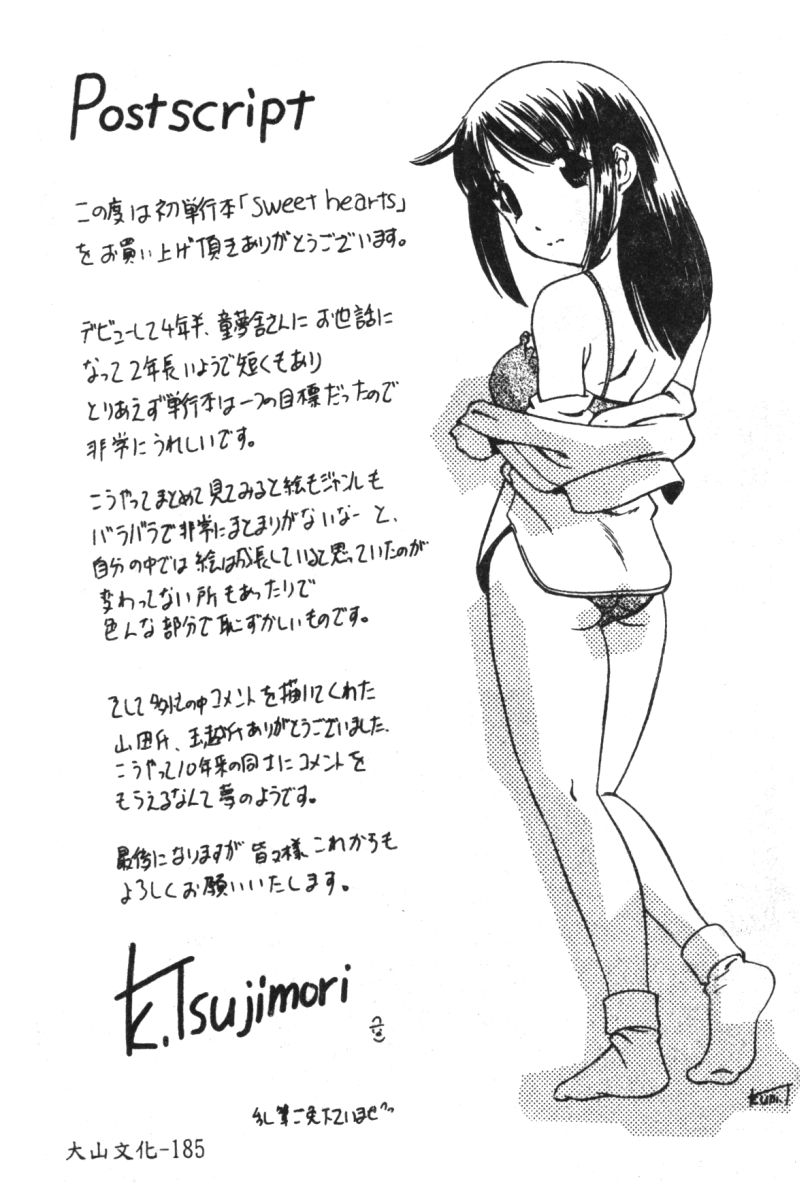 Postscript
この度は初単行本「sweet hearts」
をお買い上げ頂きありがとうございます。
デビューして4年半、童夢舎さんにお世話に
なって2年長いようで短くもあり
とりあえず単行本は一つの目標だったので
非常にうれしいです。
こうやってまとめて見てみると絵もジャンルも
バラバラで非常にまとまりがないなーと、
自分の中では絵は成長していると思っていたのが
変わってない所もあったりで
色んな部分で恥ずかしいものです。
そして多忙の中コメントを描いてくれた
山田氏、玉越氏ありがとうございました。
こうやって10年来の同士にコメントを
もらえるなんて夢のようです。
最後になりますが皆々様、これからも
よろしくお願いいたします。
K.Tsujimori
乱筆ご免下さいませ
Kuni.T
大山文化-185